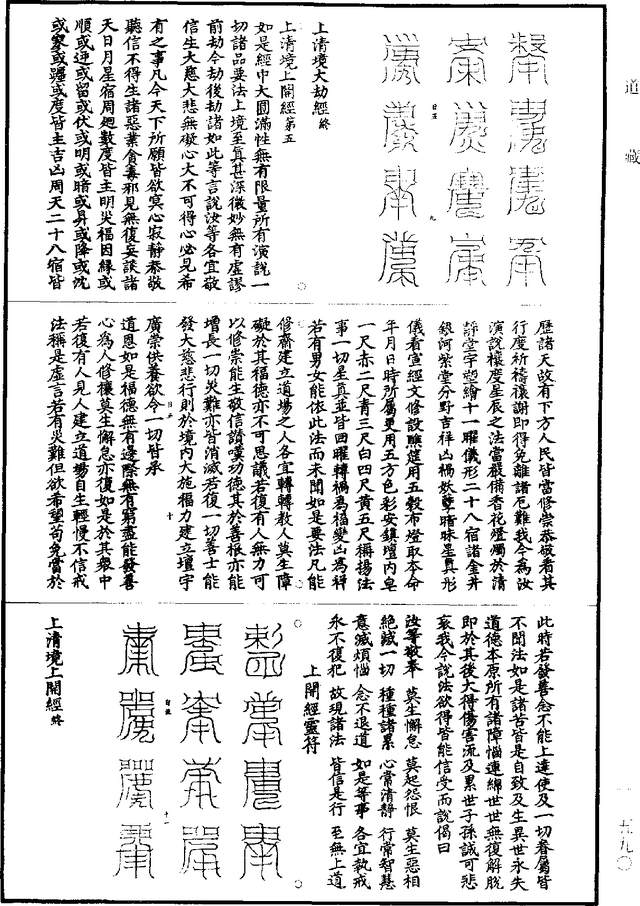 道藏
上清境大劫經終
上清境上開經第五
如是經中大圓滿性無有限量所有演說一
切諸品要法上境至真甚深微妙無有虛謬
前劫今劫後劫諸如此等言說汝等各宜敬
信生大慈大悲無礙心大不可得心必見希
有之事凡今天下所願皆欲冥心寂靜恭敬
聽信不得生諸惡業貪毒邪見無復妄談諸
天日月星宿周迴數度皆主明災福因緣或
順或逆或留或伏或明或暗或昇或降或沈
或躔或度皆主吉凶周天二十八宿皆
歷諸天故有下方人民皆當修崇恭敬看其
行度祈禱禳謝即得免離諸厄難我今為汝
演說禳度星辰之法當嚴備香花燈燭於清
靜堂宇塑繪十一曜儀形二十八宿諸金井
銀河紫堂分野吉祥凶禍妖孽暗昧星真形
儀看宣經文修設醮筵用五穀布燈取本命
年月日時所屬更用五方色彩安鎮壇內皂
一尺赤二尺青三尺白四尺黃五尺稱揚法
事一切星真並皆回曜轉禍為福變凶為祥
若有男女能依此法而未聞如是要法凡能
修齋建立道場之人各宜轉轉教人莫生障
礙於其福德亦不可思議若復有人無力可
以修崇能生敬信讚嘆功德其於善根亦能
增長一切災難亦皆消滅若復一切善士能
發大慈悲行則於境內大施福力建立壇宇
廣崇供養欲令一切皆承
道恩如是福德無有邊際無有窮盡能發善
心為人修禳莫生懈怠亦復如是於其眾中
若復有人見人建立道場自生輕慢不信戒
法稱是虛言若有災難但欲希望苟免當於
此時若發善念不能上達使及一切眷屬皆
不聞法如是諸苦皆是自致及生異世永失
道德本原所有諸障惱連綿世世無復解脫
即於其後大得傷害流及累世子孫誠可悲
哀我今說法欲得皆能信受而說偈曰
汝等敬奉 莫生懈怠 莫起怨恨 莫生惡相
絕滅一切 種種諸累 心常清靜 行常智慧
意滅煩惱 念不退道 如是等事 各宜執戒
永不復犯 故現諸法 皆信是行 至無上道
上開經靈符
上清境上開經終
五九〇